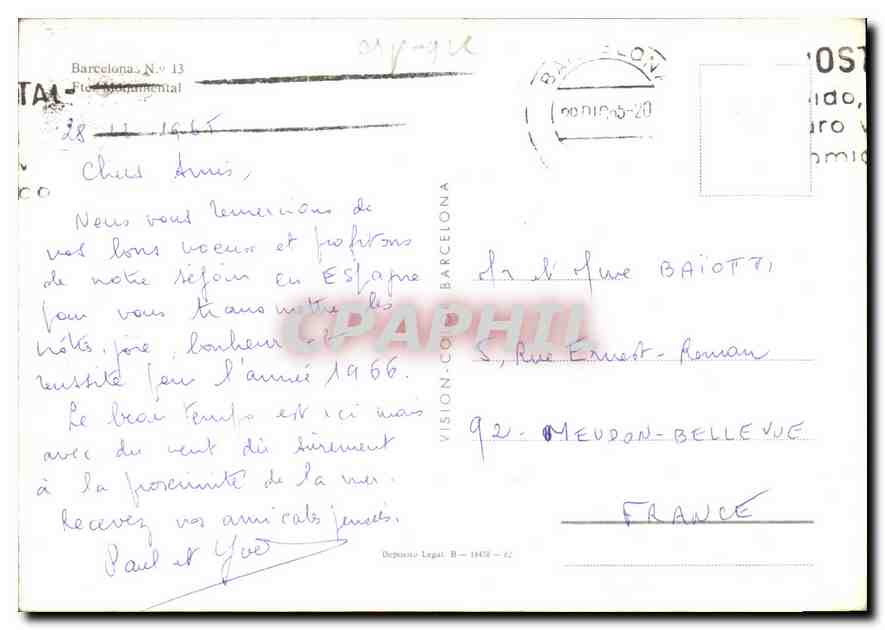 espagne
Barcelona N.º 13
Fte. Monumental
TAL
28 12 1965
CO
Chers Amis,
Nous vous remercions de
vos bons voeux et profitons
de notre séjour en ESpagne
pour vous transmettre les
nôtres, joie, bonheur et
réussite pour l'année 1966.
Le beau temps est ici mais
avec du vent dû sûrement
à la proximité de la mer.
Recevez vos amicales pensées.
Paul et Yves
VISION-COLOR BARCELONA
BARCELONA
OST
ido,
uro v
omic
Mr et Mme BAÏOTTI
5, Rue Ernest-Renan
92 - MEUDON-BELLEVUE
FRANCE
CPAPHIL
Depósito Legal. B —